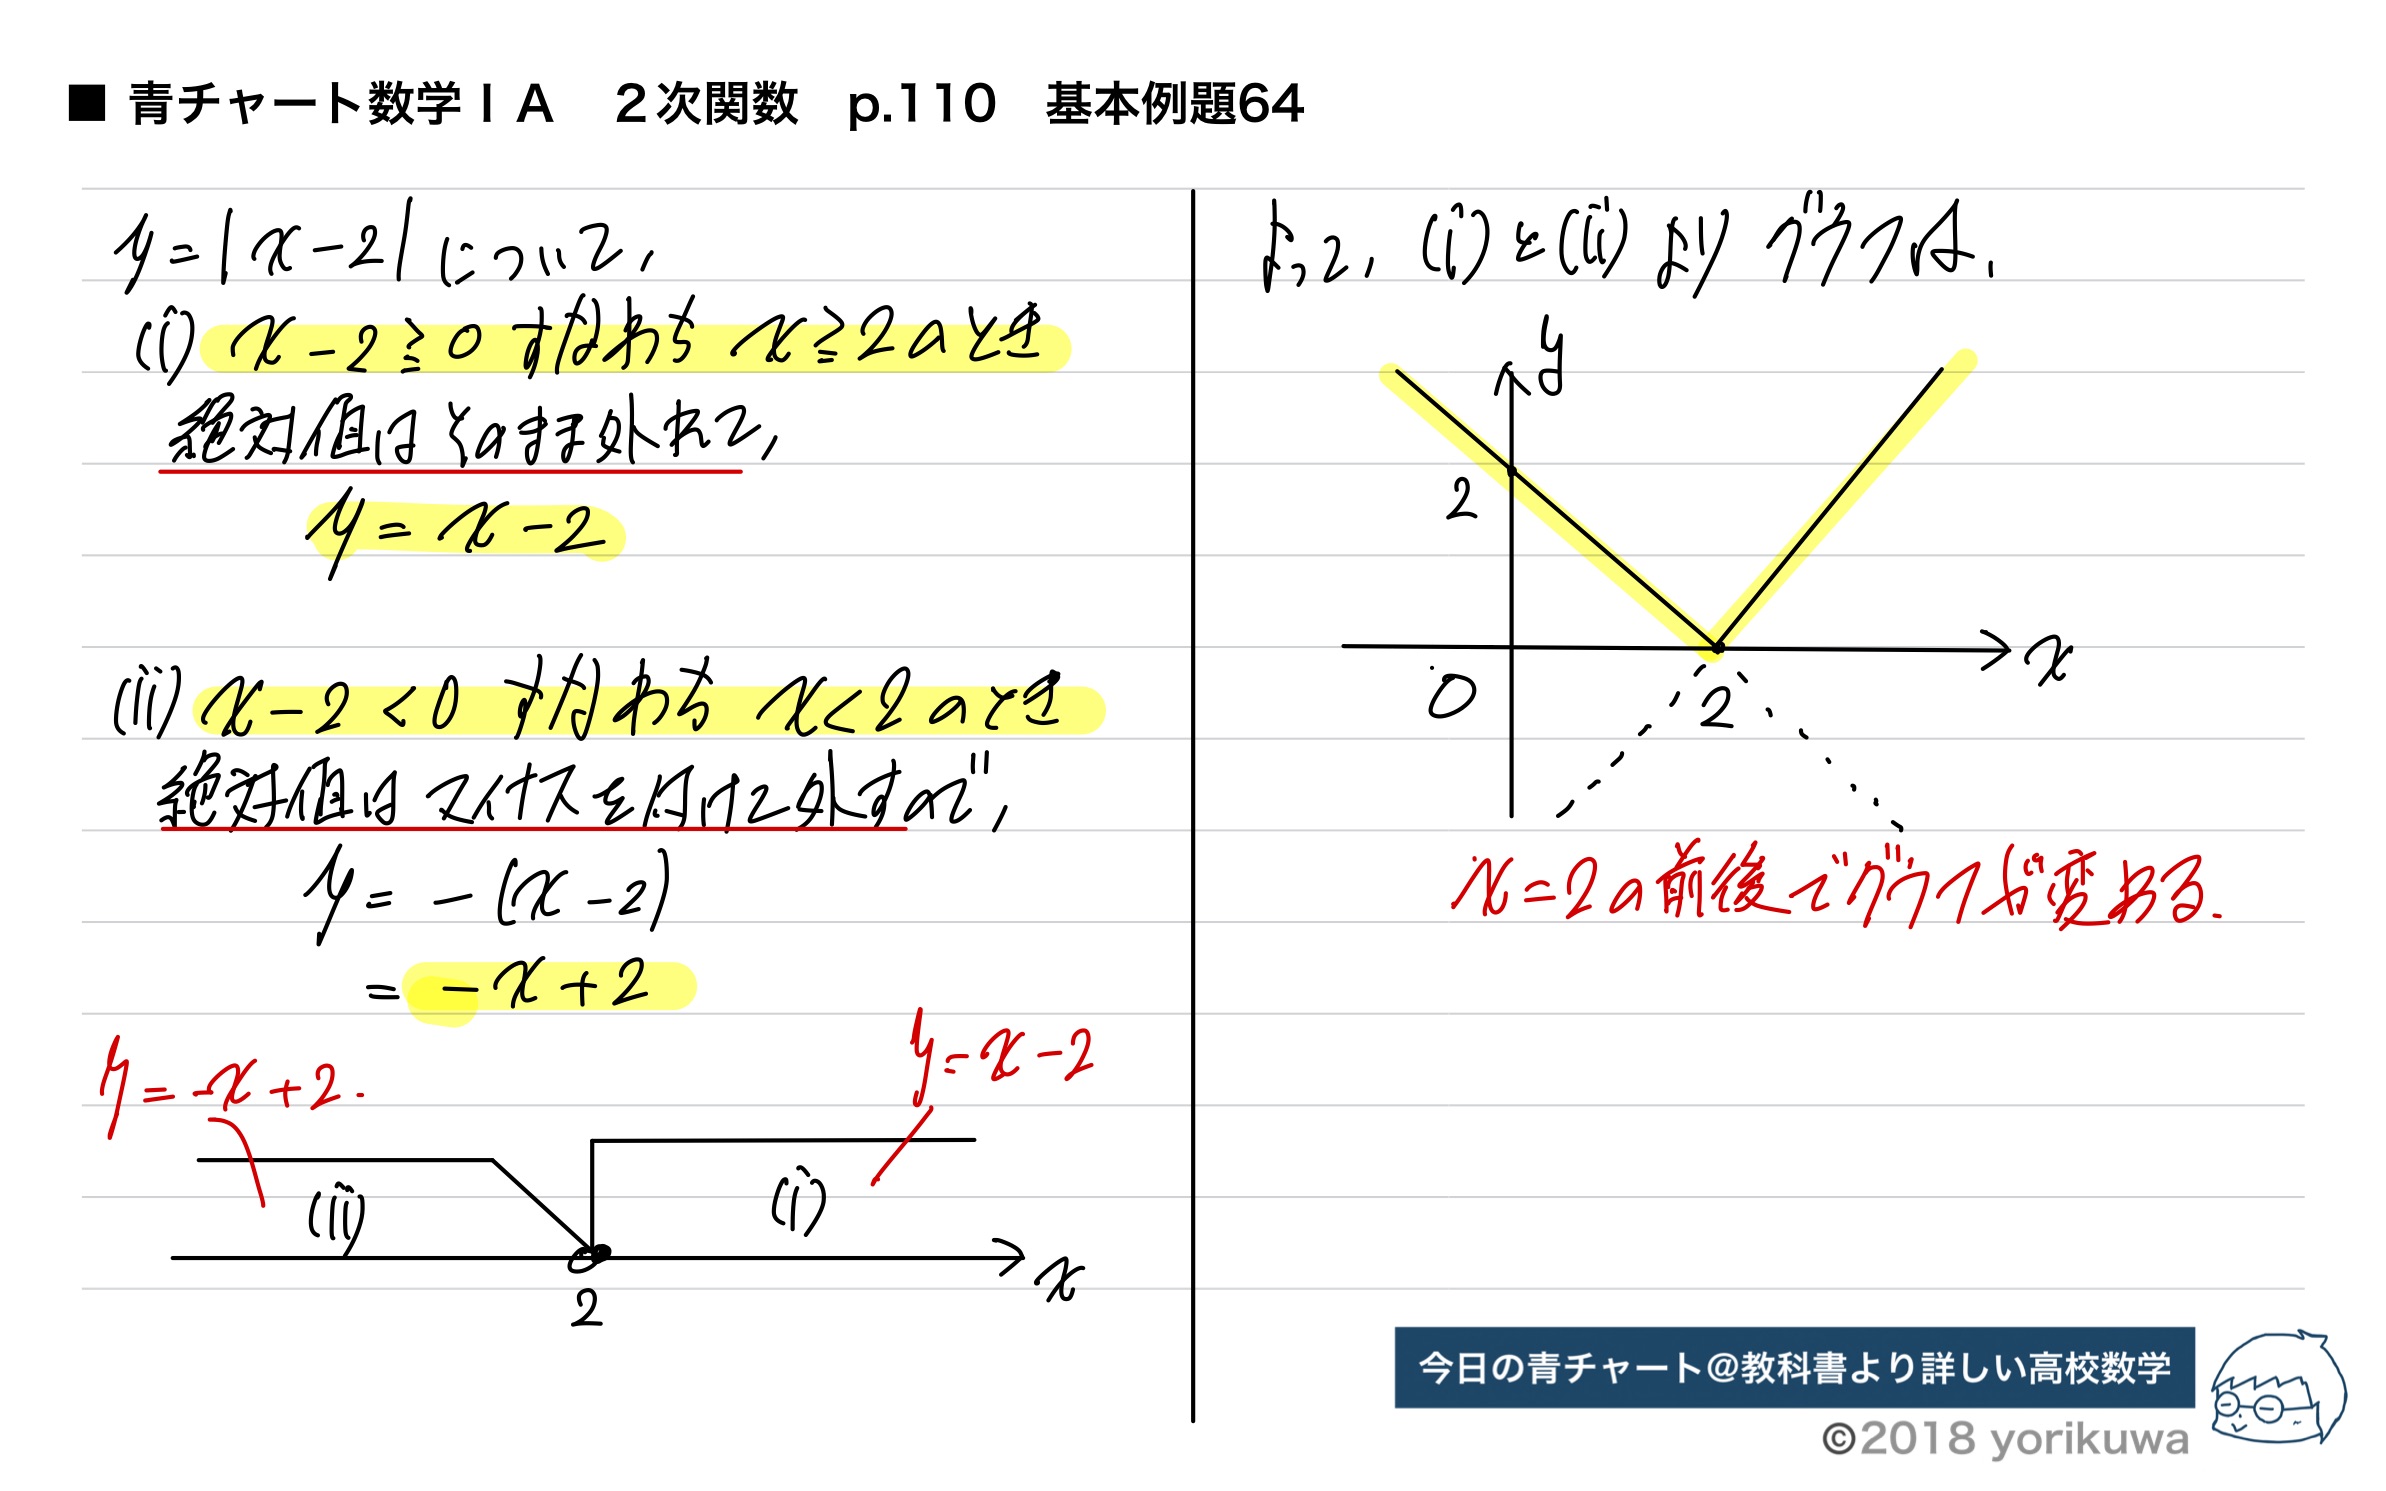 ■ 青チャート数学ⅠA　２次関数　p.110　基本例題64
y=|x-2|について,
(i) x-2≧0 すなわち x≧2のとき
絶対値はそのまま外れて,
y=x-2
(ii) x-2<0 すなわち x<2のとき
絶対値はマイナスを付けて外すので,
y=-(x-2)
=-x+2
y=-x+2.
y=x-2
(ii)
(i)
2
x
よって, (i)と(ii)よりグラフは,
y
2
x
0
2
x=2の前後でグラフが変わる.
今日の青チャート@教科書より詳しい高校数学
©2018 yorikuwa